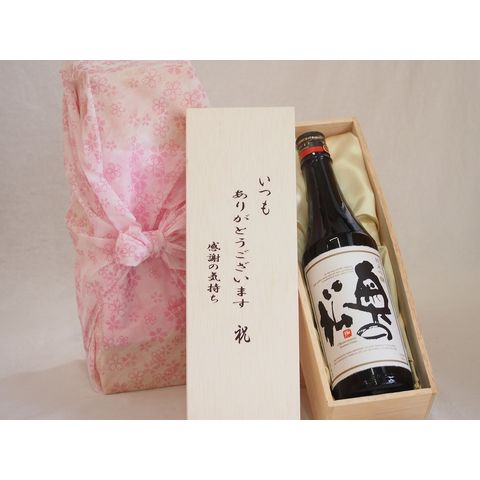 いつも
ありがとうございます
感謝の気持ち
祝
奥の
松